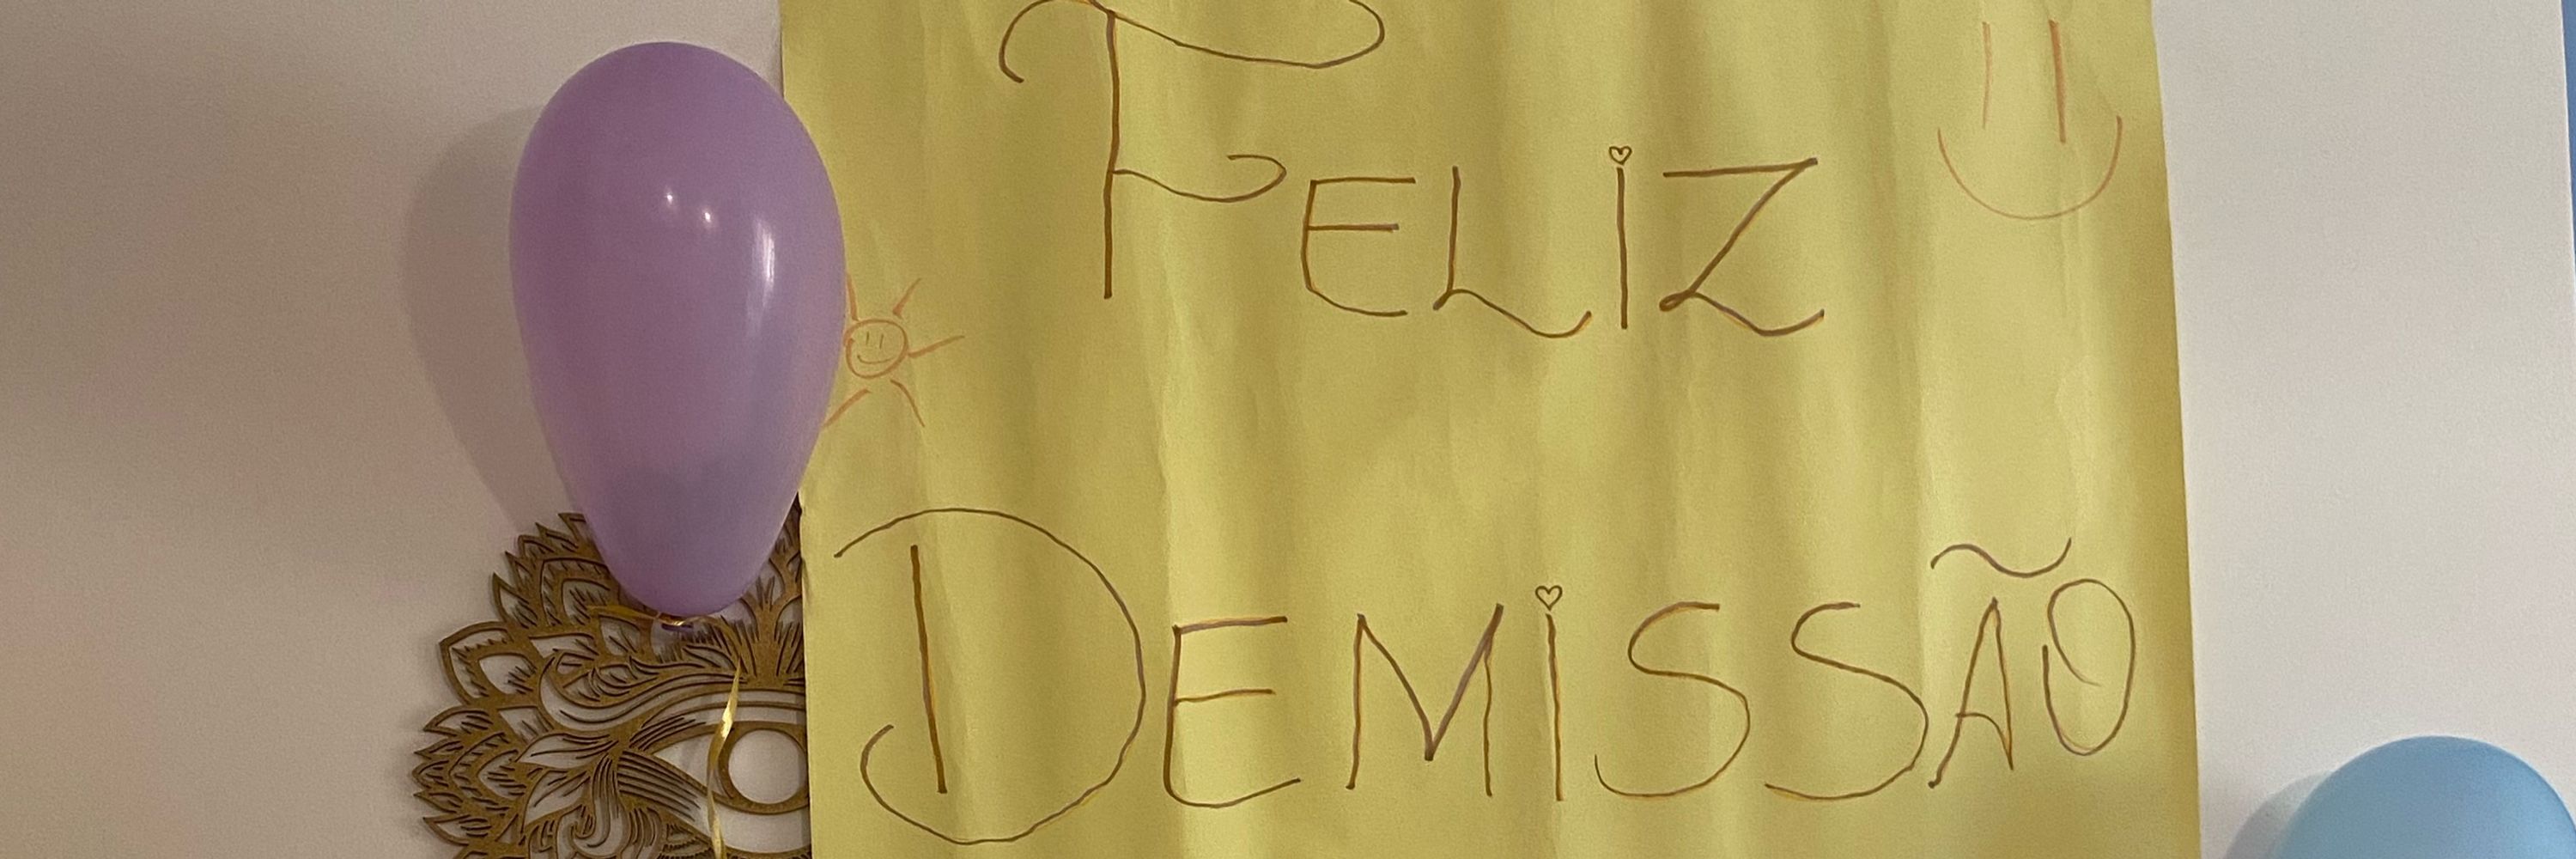 FELiZ
DEMiSSÃO